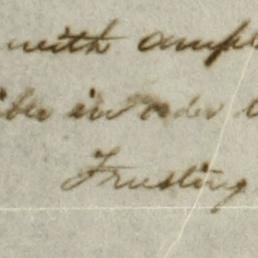 with amp
in order
Trusting